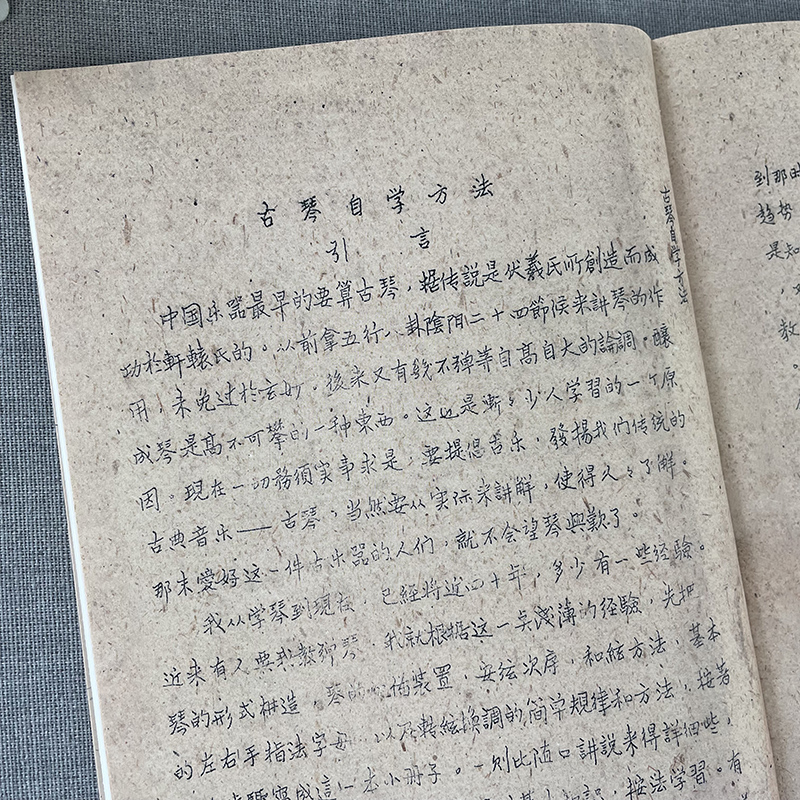 古琴自学方法
引言
中国乐器最早的要算古琴，据传説是伏羲氏所創造而成
功於軒轅氏的。从前拿五行八卦陰阳二十四節候来講琴的作
用，未免过於玄妙，後来又有幾不弹等自高自大的論調，釀
成琴是高不可攀的一种東西。这也是漸々少人学習的一个原
因。現在一切務須实事求是，要提倡音乐，發揚我们传统的
古典音乐——古琴，当然要从实际来講解，使得人々了解。
那末愛好这一件古乐器的人们，就不会望琴興歎了。
我从学琴到現在，已經将近四十年，多少有一些经驗。
近来有人要我教弹琴，我就根据这一点浅薄的经驗，先把
琴的形式構造，琴的 俻装置，安弦次序，和絃方法，基本
的左右手指法字母，以及轉絃換調的简单規律和方法，接著
寫成這一本小册子。一則比随口講説来得詳细些，
按法学習。有
古琴自学方法
到那时
趋势
是知
教